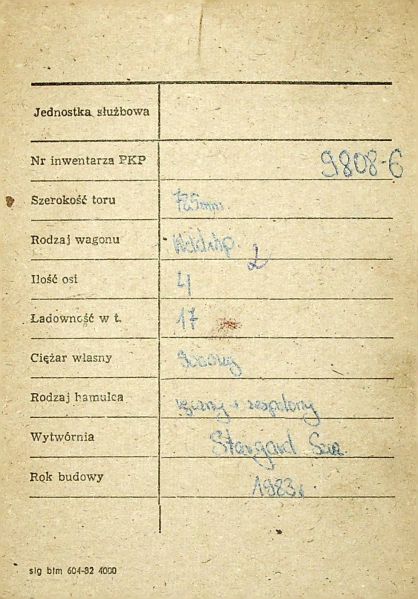 Jednostka służbowa
Nr inwentarza PKP 9808-6
Szerokość toru 785mm.
Rodzaj wagonu 2
Ilość osi 4
Ładowność w t. 17
Ciężar własny
Rodzaj hamulca ręczny + zespolony
Wytwórnia Stargard Szcz.
Rok budowy 1983r
sig blm 604-82 4000